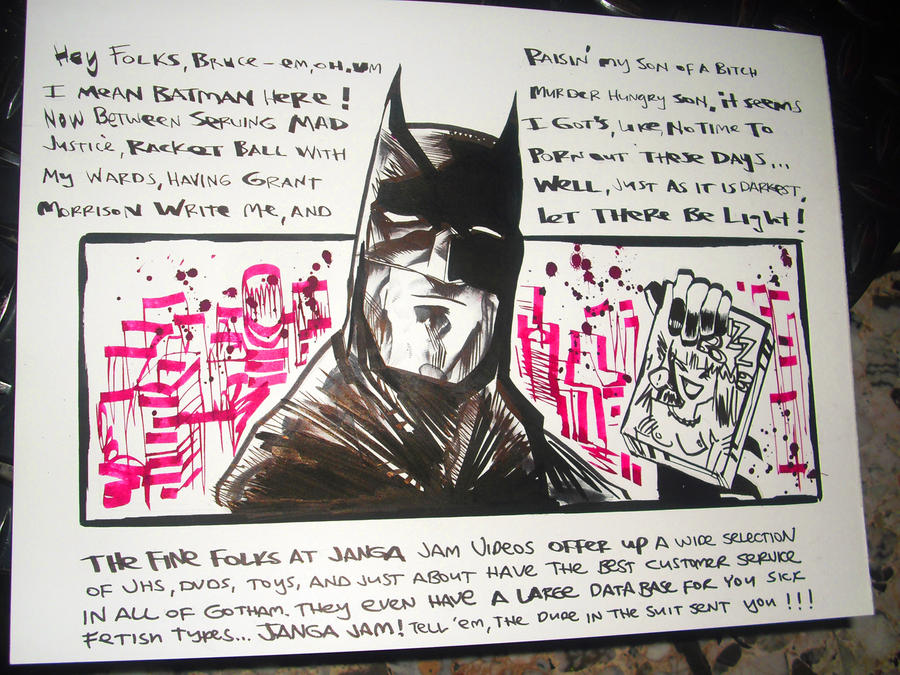 Hey Folks, Bruce - em, oh, um
I mean Batman here!
Now Between Serving Mad
Justice, Racket Ball with
my wards, having Grant
Morrison write me, and
Raisin' my son of a bitch
murder hungry son, it seems
I got's, like, no time to
porn out these days...
Well, just as it is darkest,
let there be light!
The fine folks at Janga Jam Videos offer up a wide selection
of VHS, DVDs, toys, and just about have the best customer service
in all of Gotham. They even have a large database for you sick
fetish types... Janga Jam! Tell 'em, the dude in the suit sent you!!!